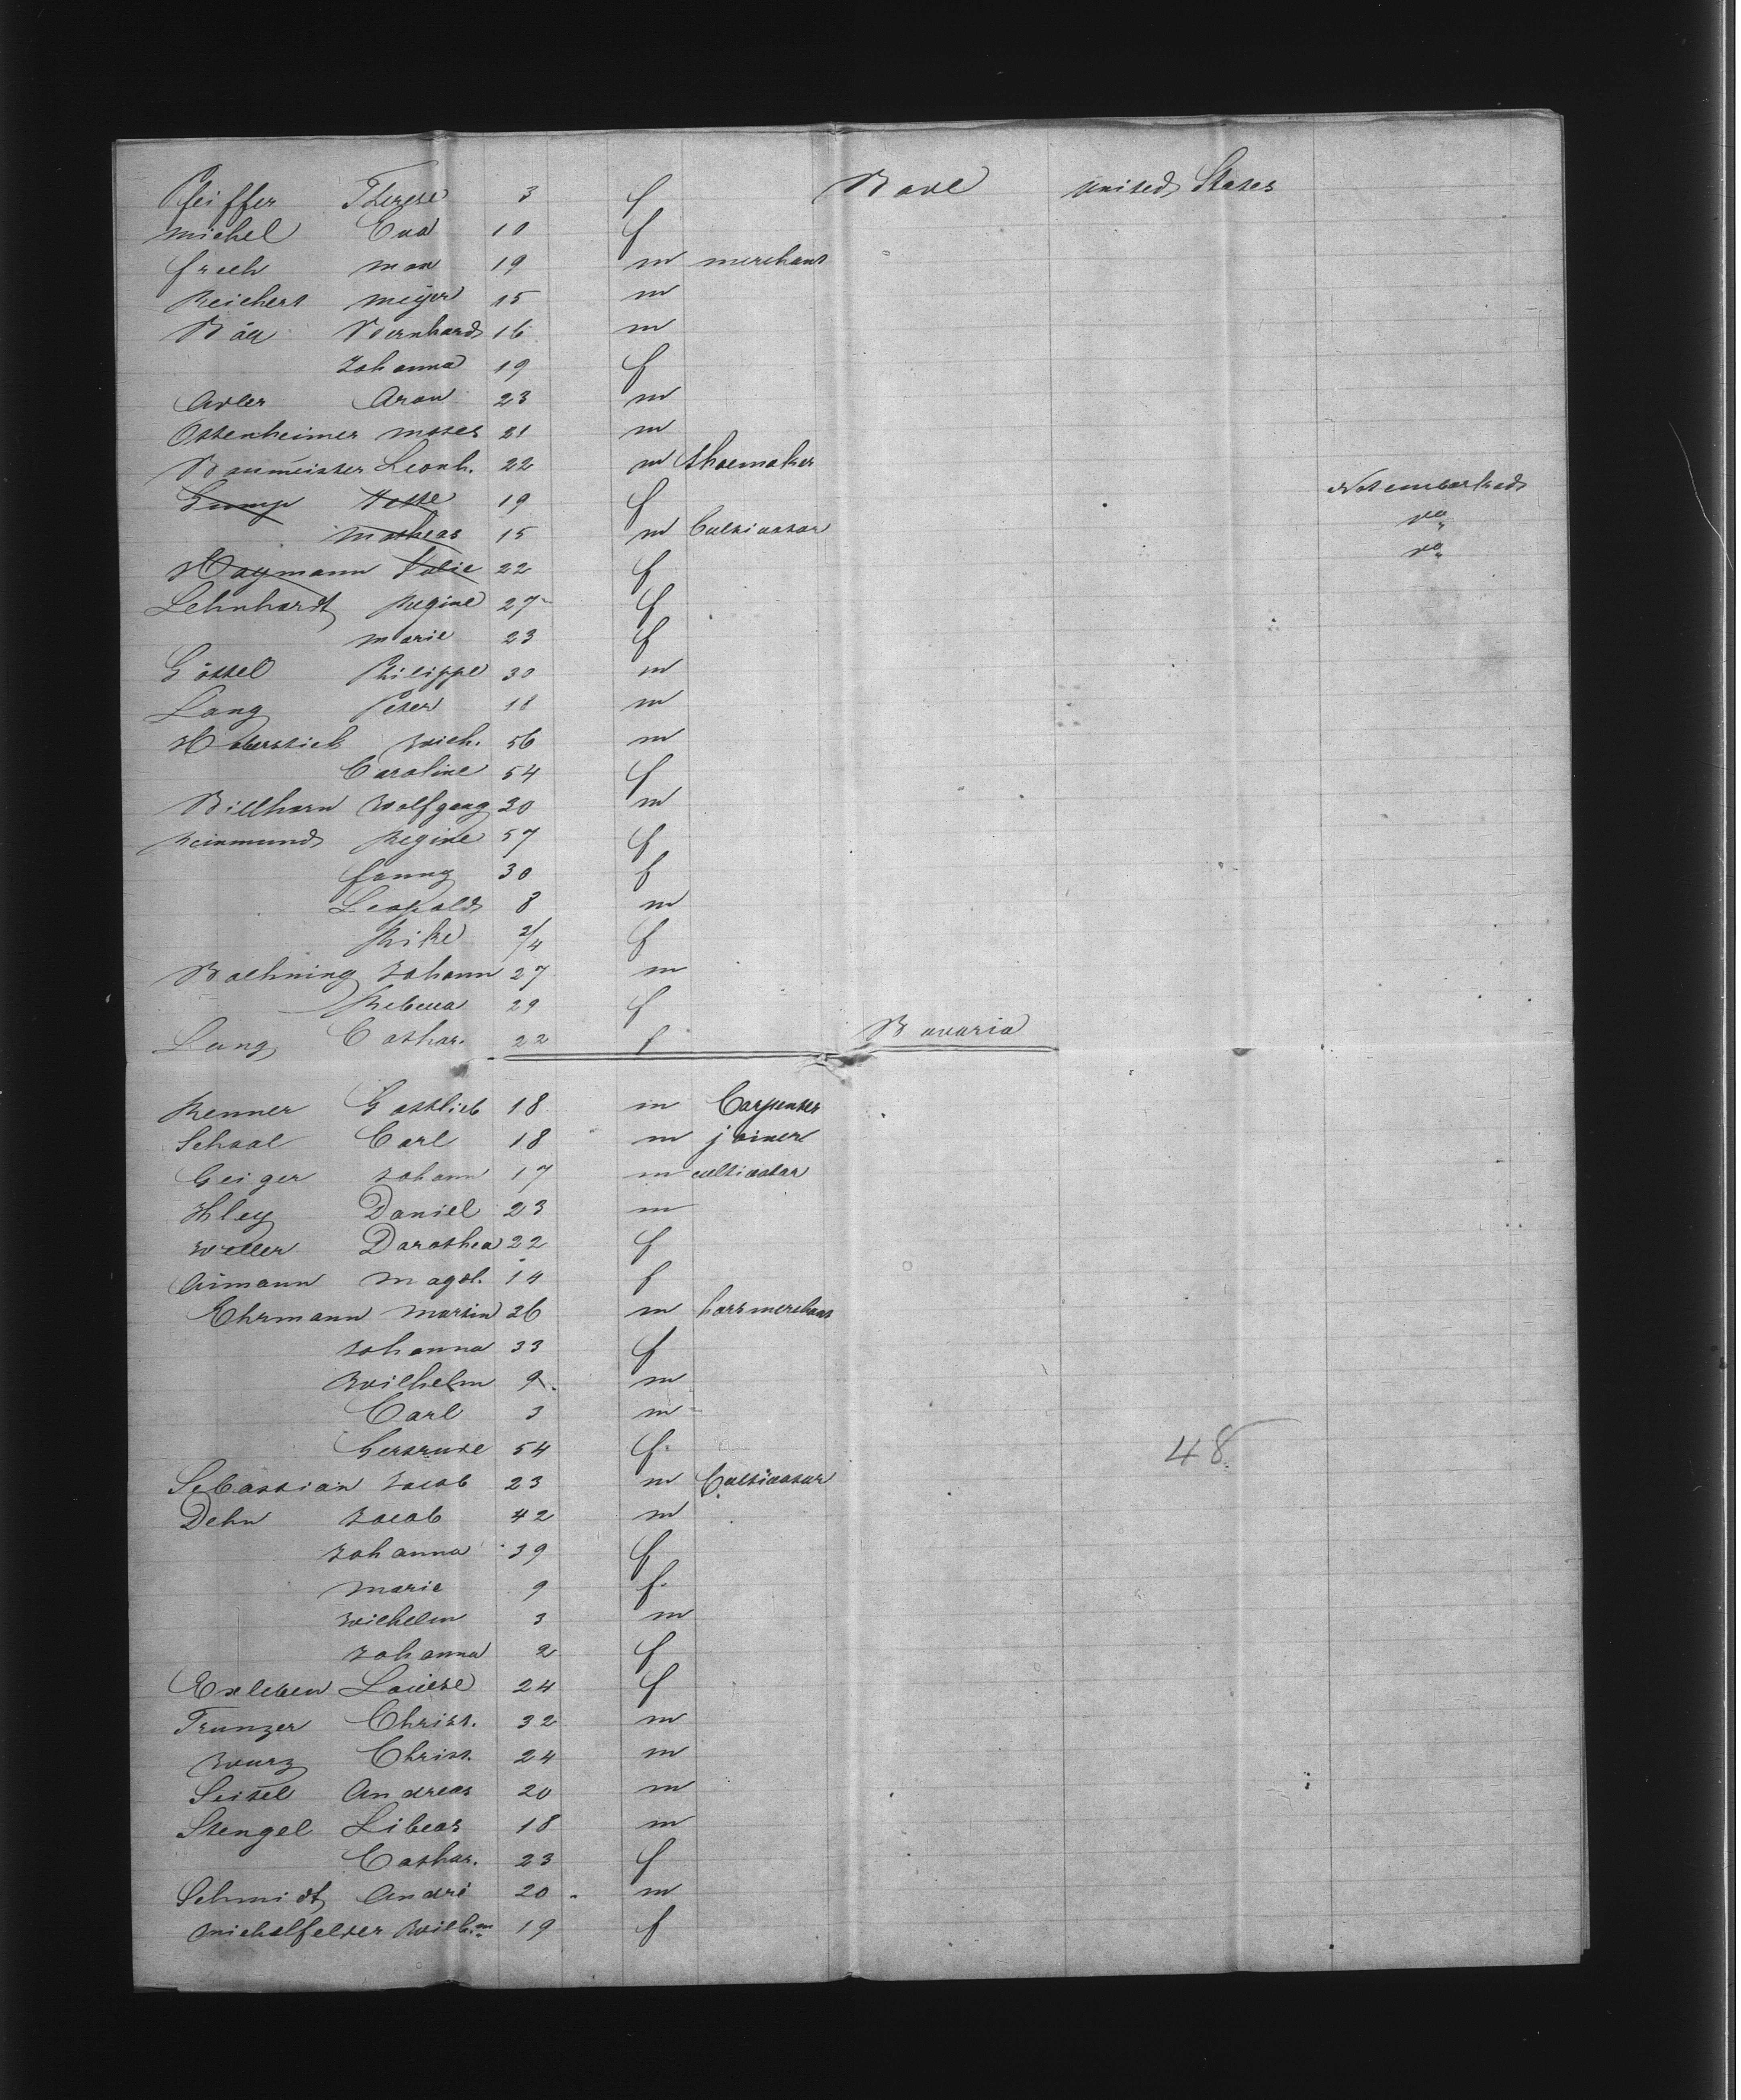 Pfeiffer Therese 3 f Bade united States
Michel Eva 10 f
Frech Max 19 m merchant
Reichert Meÿer 15 m
Bär Bernhard 16 m
Johanna 19 f
Adler Aron 23 m
Ottenheimer Moses 21 m
Baumeister Leonh. 22 m Shoemaker
Gump 19 f Not embarked
Matheas 15 m Cultivator do
Haymann 22 f do
Lehnhardt Regine 27 f
Marie 23 f
Gössel Philippe 30 m
Lang Peter 18 m
Haberstich Wich. 56 m
Caroline 54 f
Billharn Wolfgang 30 m
Reinmund Regine 57 f
Fanny 30 f
Leopold 8 m
Rike 2/4 f
Baehning Johann 27 m
Rebecca 29 f
Lang Cathar. 22 f Bavaria
Renner Gottlieb 18 m Carpenter
Schaal Carl 18 m joiner
Geiger Johann 17 m cultivator
Hley Daniel 23 m
Weller Dorothea 22 f
Aimann Magd. 14 f
Ehrmann Martin 26 m horsmerchant
Johanna 33 f
Wilhelm 9 m
Carl 3 m
Gertrude 54 f. 48
Sebastian Jacob 23 m Cultivator
Dehn Jacob 42 m
Johanna 39 f
Marie 9 f.
Wilhelm 3 m
Johanna 2 f
Exleben Louise 24 f
Trunzer Christ. 32 m
Wurz Christ. 24 m
Seitel Andreas 20 m
Stengel Libeas 18 m
Cathar. 23 f
Schmidt André 20 m
Michelfelder Wilh.m 19 f